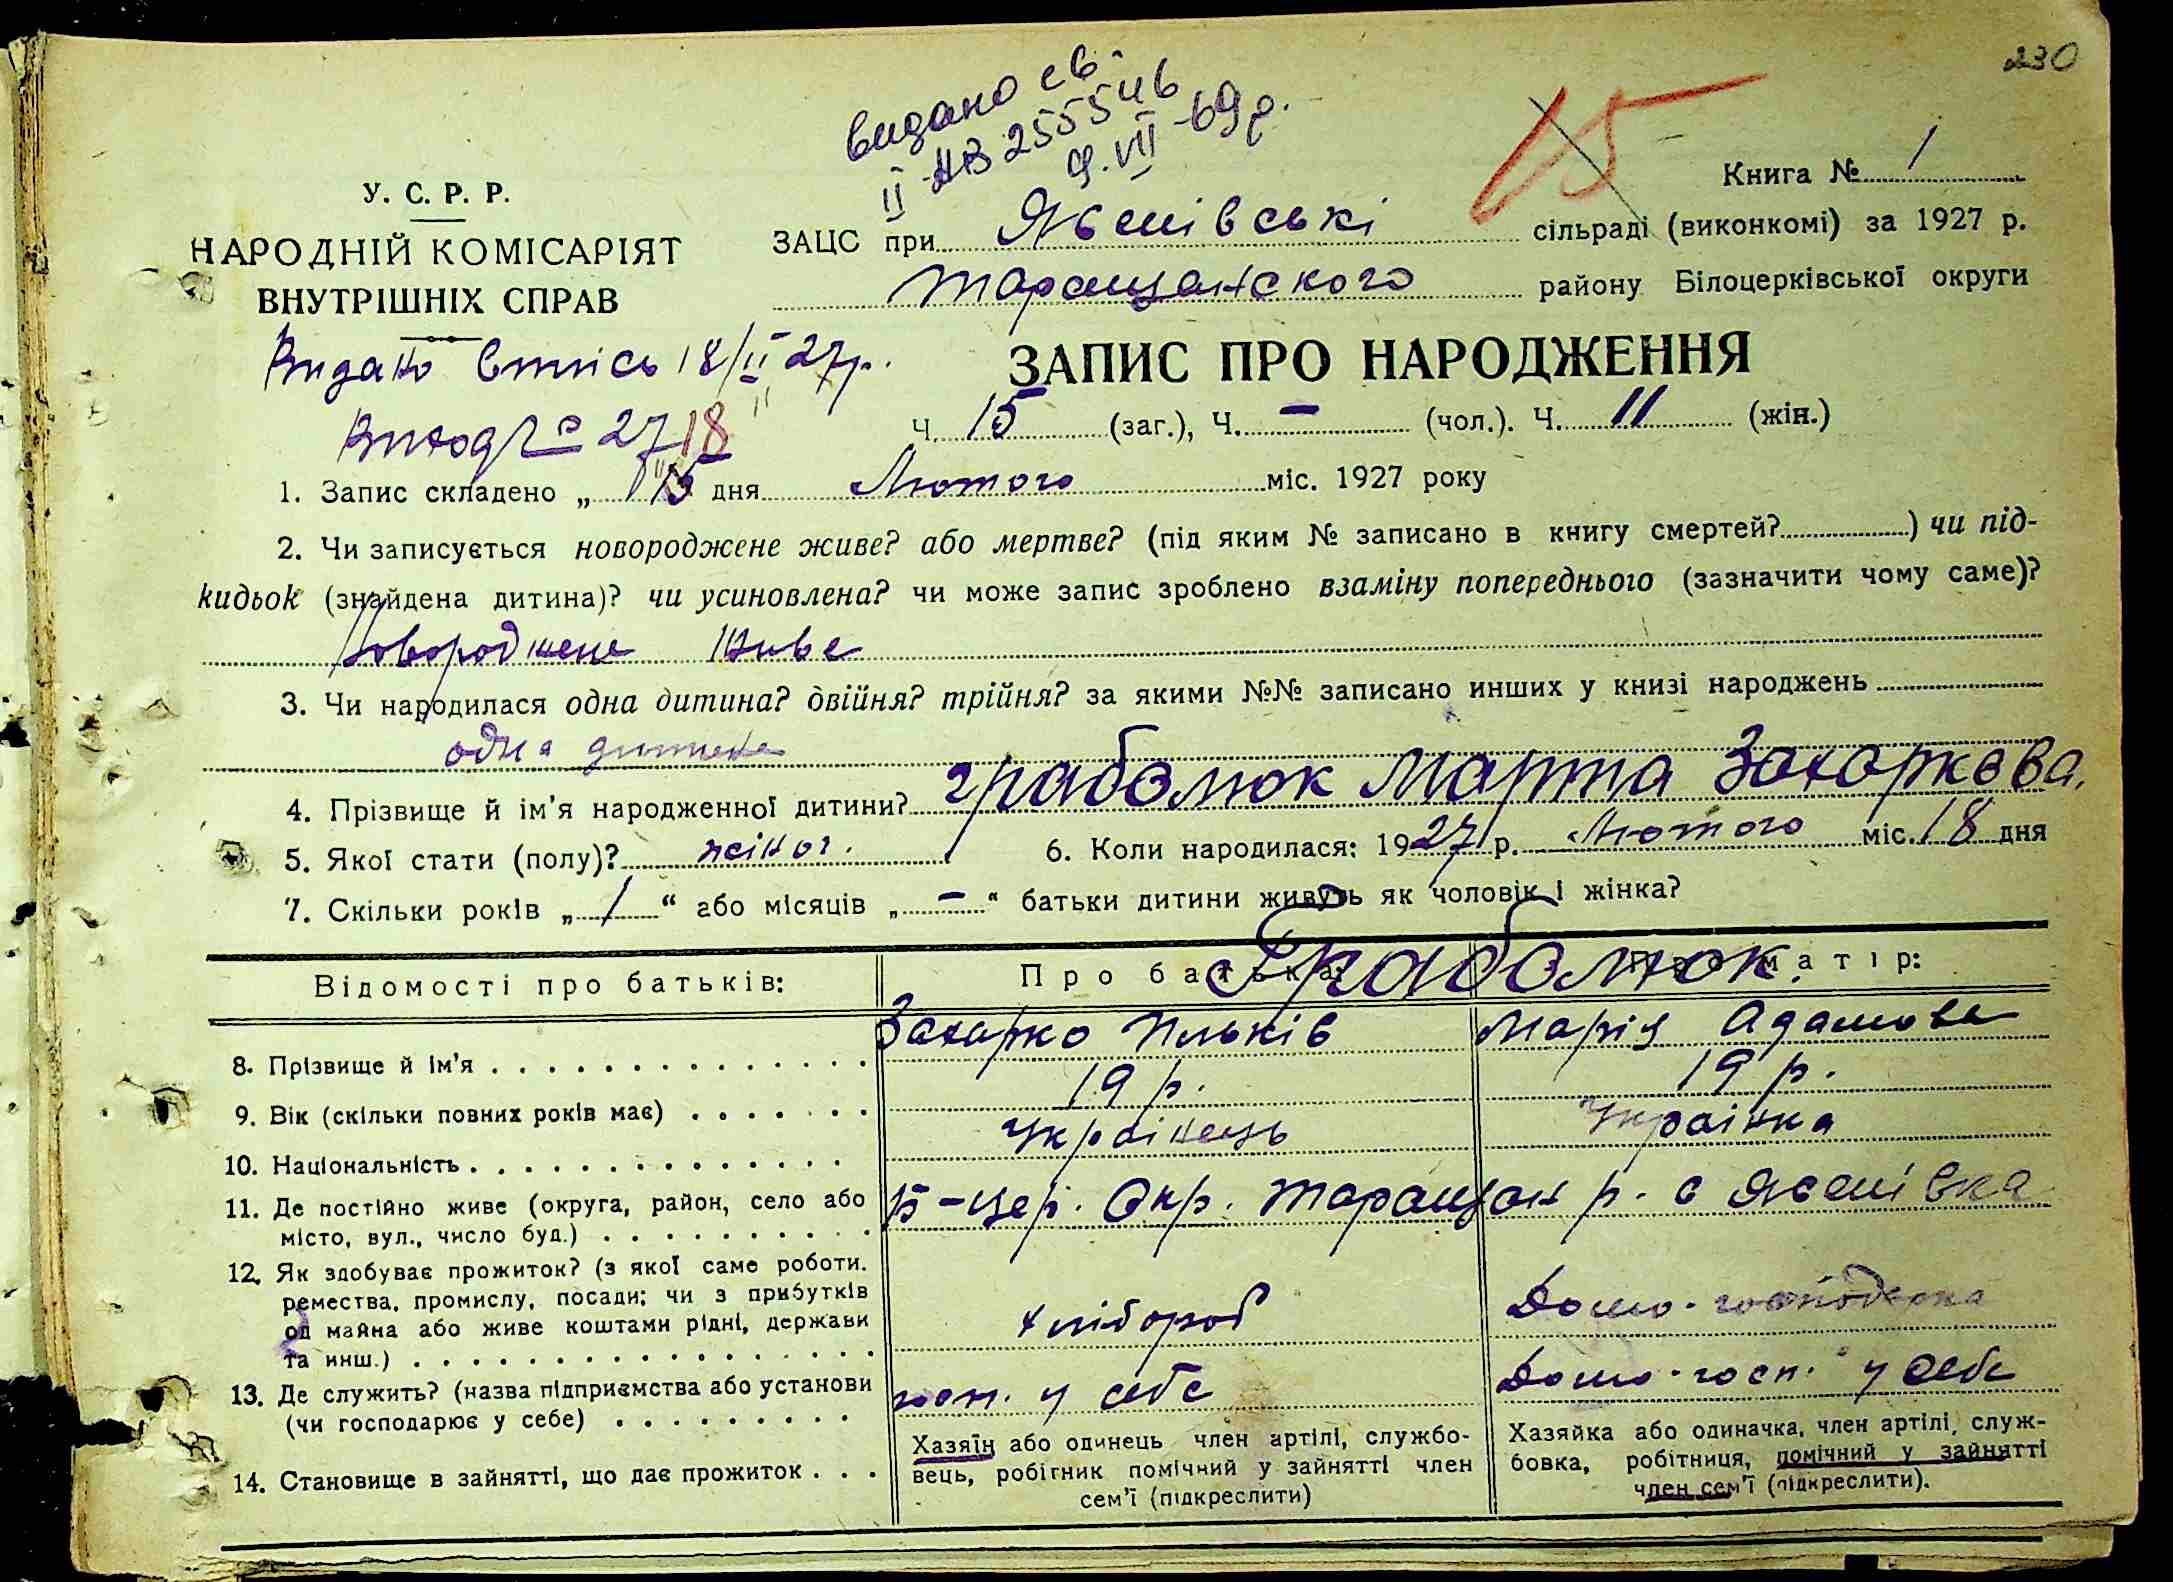 230
видано св.
II-АВ 255546
9.VII-69 р.
15
Книга № 1
У. С. Р. Р.
НАРОДНІЙ КОМІСАРІЯТ
ВНУТРІШНІХ СПРАВ
ЗАЦС при Ясенівські сільраді (виконкомі) за 1927 р.
Таращанского району Білоцерківської округи
Видано Витпісь 18/II 27р.
ЗАПИС ПРО НАРОДЖЕННЯ
Виход № 27
18
Ч. 15 (заг.), Ч. — (чол.). Ч. 11 (жін.)
1. Запис складено „ дня Лютого міс. 1927 року
2. Чи записується новороджене живе? або мертве? (під яким № записано в книгу смертей? ) чи під-
кидьок (знайдена дитина)? чи усиновлена? чи може запис зроблено взаміну попереднього (зазначити чому саме)?
Новороджене Живе
3. Чи народилася одна дитина? двійня? трійня? за якими №№ записано инших у книзі народжень
одна дитина
4. Прізвище й ім'я народженної дитини? Граболюк Марта Захаркова.
5. Якої стати (полу)? жіноч. 6. Коли народилася: 1927 р. Лютого міс. 18 дня
7. Скільки років „ 1 “ або місяців „ — “ батьки дитини живуть як чоловік і жінка?
Граболюк.
Відомості про батьків: Про батька: Про матір:
8. Прізвище й ім'я Захарко Ільків Марія Адамова
9. Вік (скільки повних років має) 19 р. 19 р.
10. Національність Українець Українка
11. Де постійно живе (округа, район, село або
місто, вул., число буд.) Б-Цер. Окр. Таращан р. с Ясенівка
12. Як здобуває прожиток? (з якої саме роботи.
ремества, промислу, посади; чи з прибутків
од майна або живе коштами рідні, держави
та инш.) Хлібороб Домо-господарка
13. Де служить? (назва підприємства або установи
(чи господарює у себе) госп. у себе Домо-госп. у себе
14. Становище в зайнятті, що дає прожиток
Хазяїн або одинець член артілі, службо-
вець, робігник помічний у зайнятті член
сем'ї (підкреслити)
Хазяйка або одиначка, член артілі, служ-
бовка, робітниця, помічний у зайнятті
член сем'ї (підкреслити).